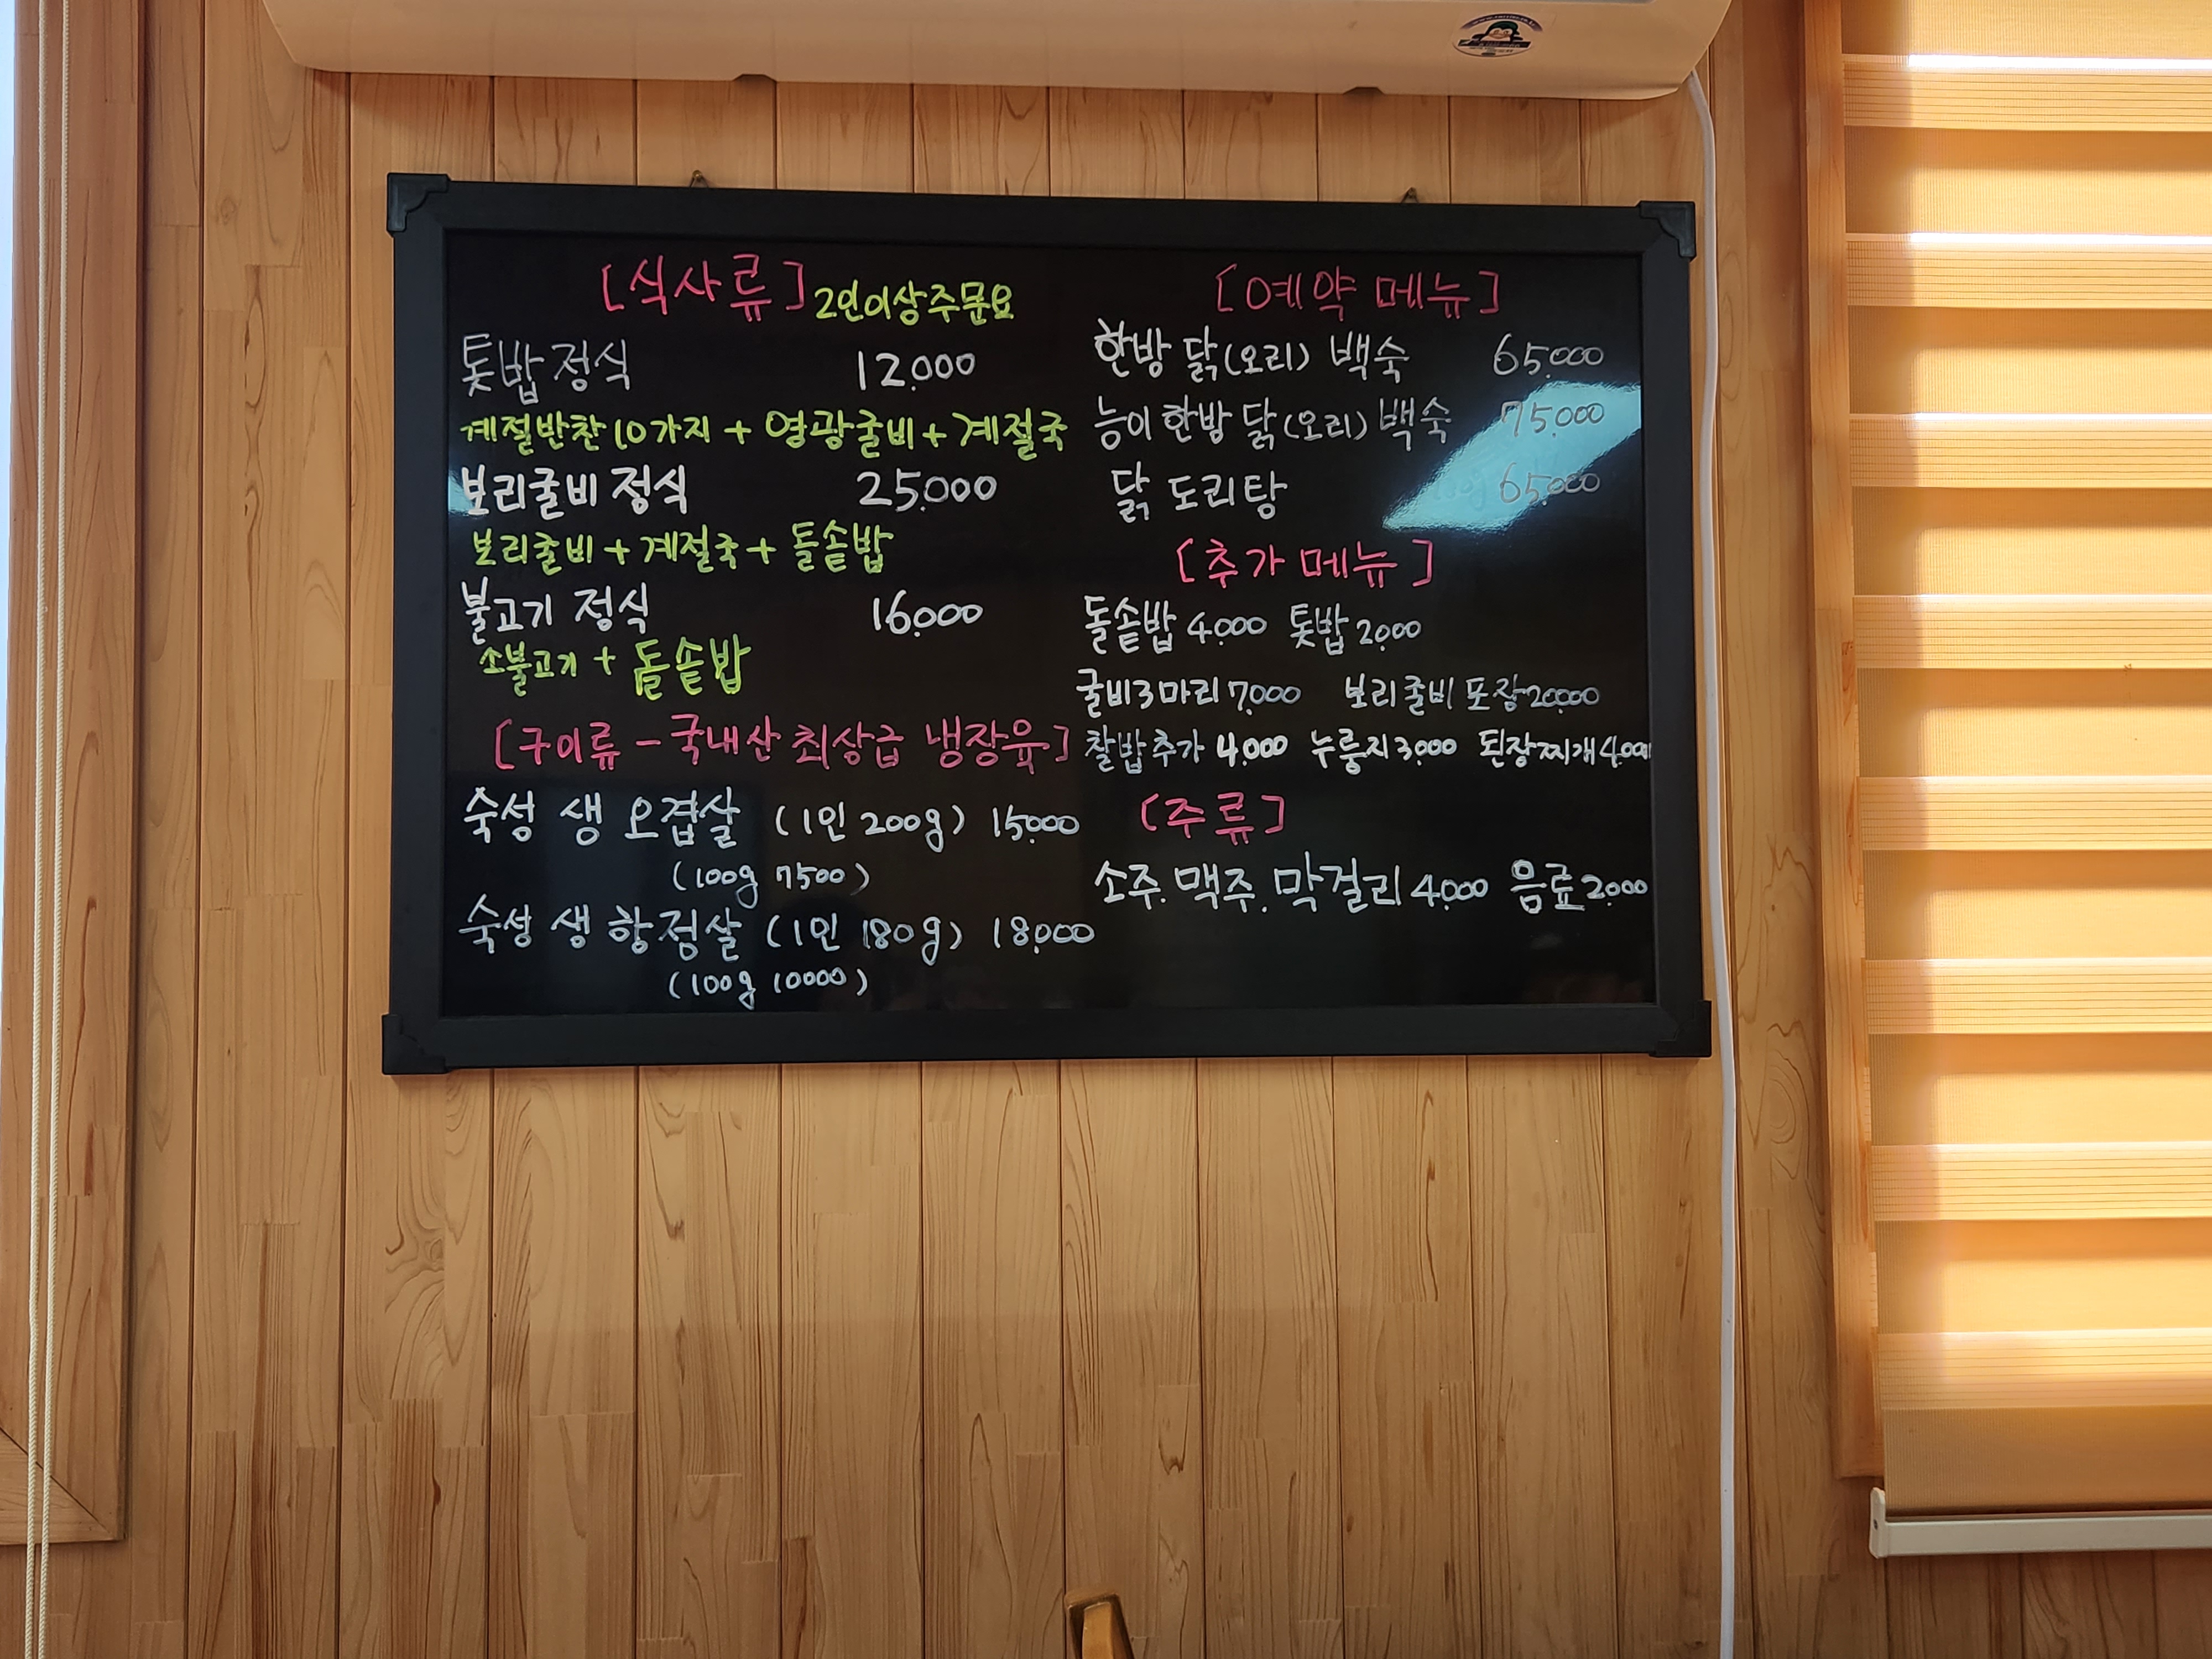 [식사류] 2인이상주문요
톳밥 정식 12.000
계절반찬10가지 + 영광굴비 + 계절국
보리굴비 정식 25.000
보리굴비 + 계절국 + 돌솥밥
불고기 정식 16.000
소불고기 + 돌솥밥
[구이류 - 국내산 최상급 냉장육]
숙성 생 오겹살 (1인 200g) 15.000
(100g 7500)
숙성 생 항정살 (1인 180g) 18.000
(100g 10000)
[예약 메뉴]
한방 닭(오리) 백숙 65.000
능이 한방 닭(오리) 백숙 75.000
닭 도리탕 65.000
[추가 메뉴]
돌솥밥 4.000 톳밥 2.000
굴비3마리 7.000 보리굴비 포장 20.000
찰밥추가 4.000 누룽지 3.000 된장찌개 4.000
[주류]
소주. 맥주. 막걸리 4.000 음료 2.000